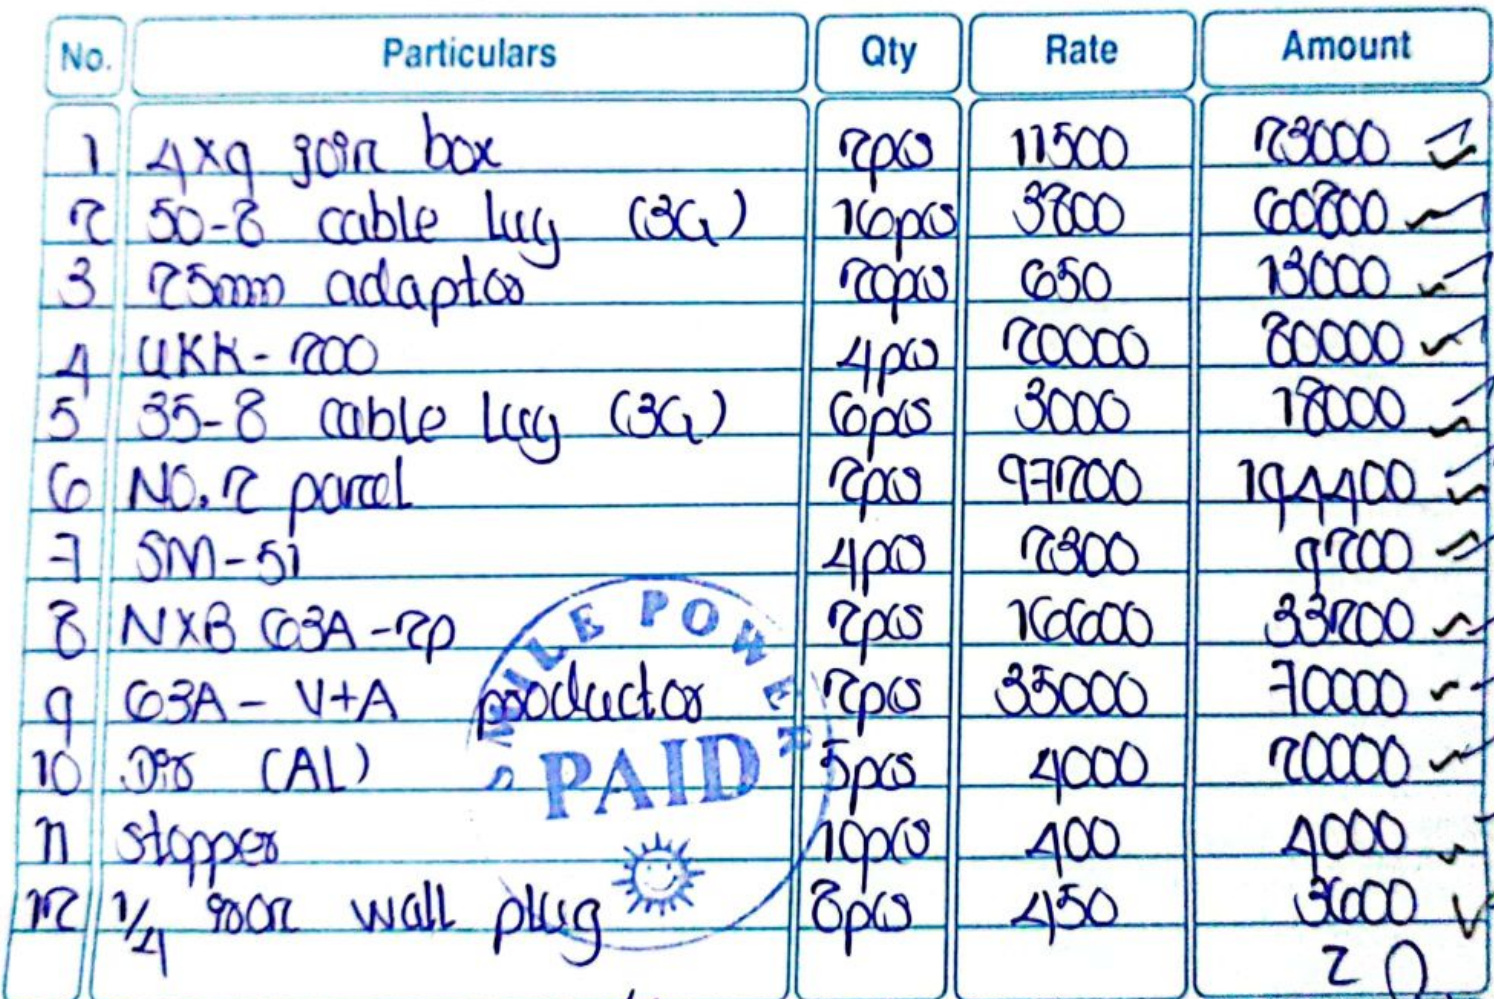 No. Particulars Qty Rate Amount
1 4x9 join box 2pcs 11500 23000
2 50-8 cable lug (3G) 16pcs 3800 60800
3 25mm adaptor 20pcs 650 13000
4 UKK-200 4pcs 20000 80000
5 35-8 cable lug (3G) 6pcs 3000 18000
6 NO.2 panel 2pcs 97200 194400
7 SM-51 4pcs 2300 9200
8 NXB 63A-2P 2pcs 16600 33200
9 63A- V+A productor 2pcs 35000 70000
10 Din (AL) 5pcs 4000 20000
11 stopper 10pcs 400 4000
12 1/4 iron wall plug 8pcs 450 3600
SMILE POWER
PAID